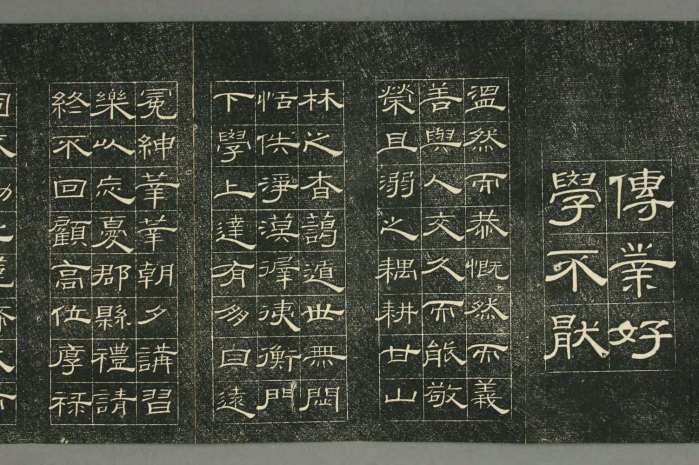 傳業好
學不猒
溫然而恭慨然而義
善與人交久而能敬
榮且溺之耦耕甘山
林之杳藹遁世無悶
恬佚淨漠徲徥衡門
下學上達有朋自遠
冕紳莘莘朝夕講習
樂以忘憂郡縣禮請
終不回顧高位厚祿